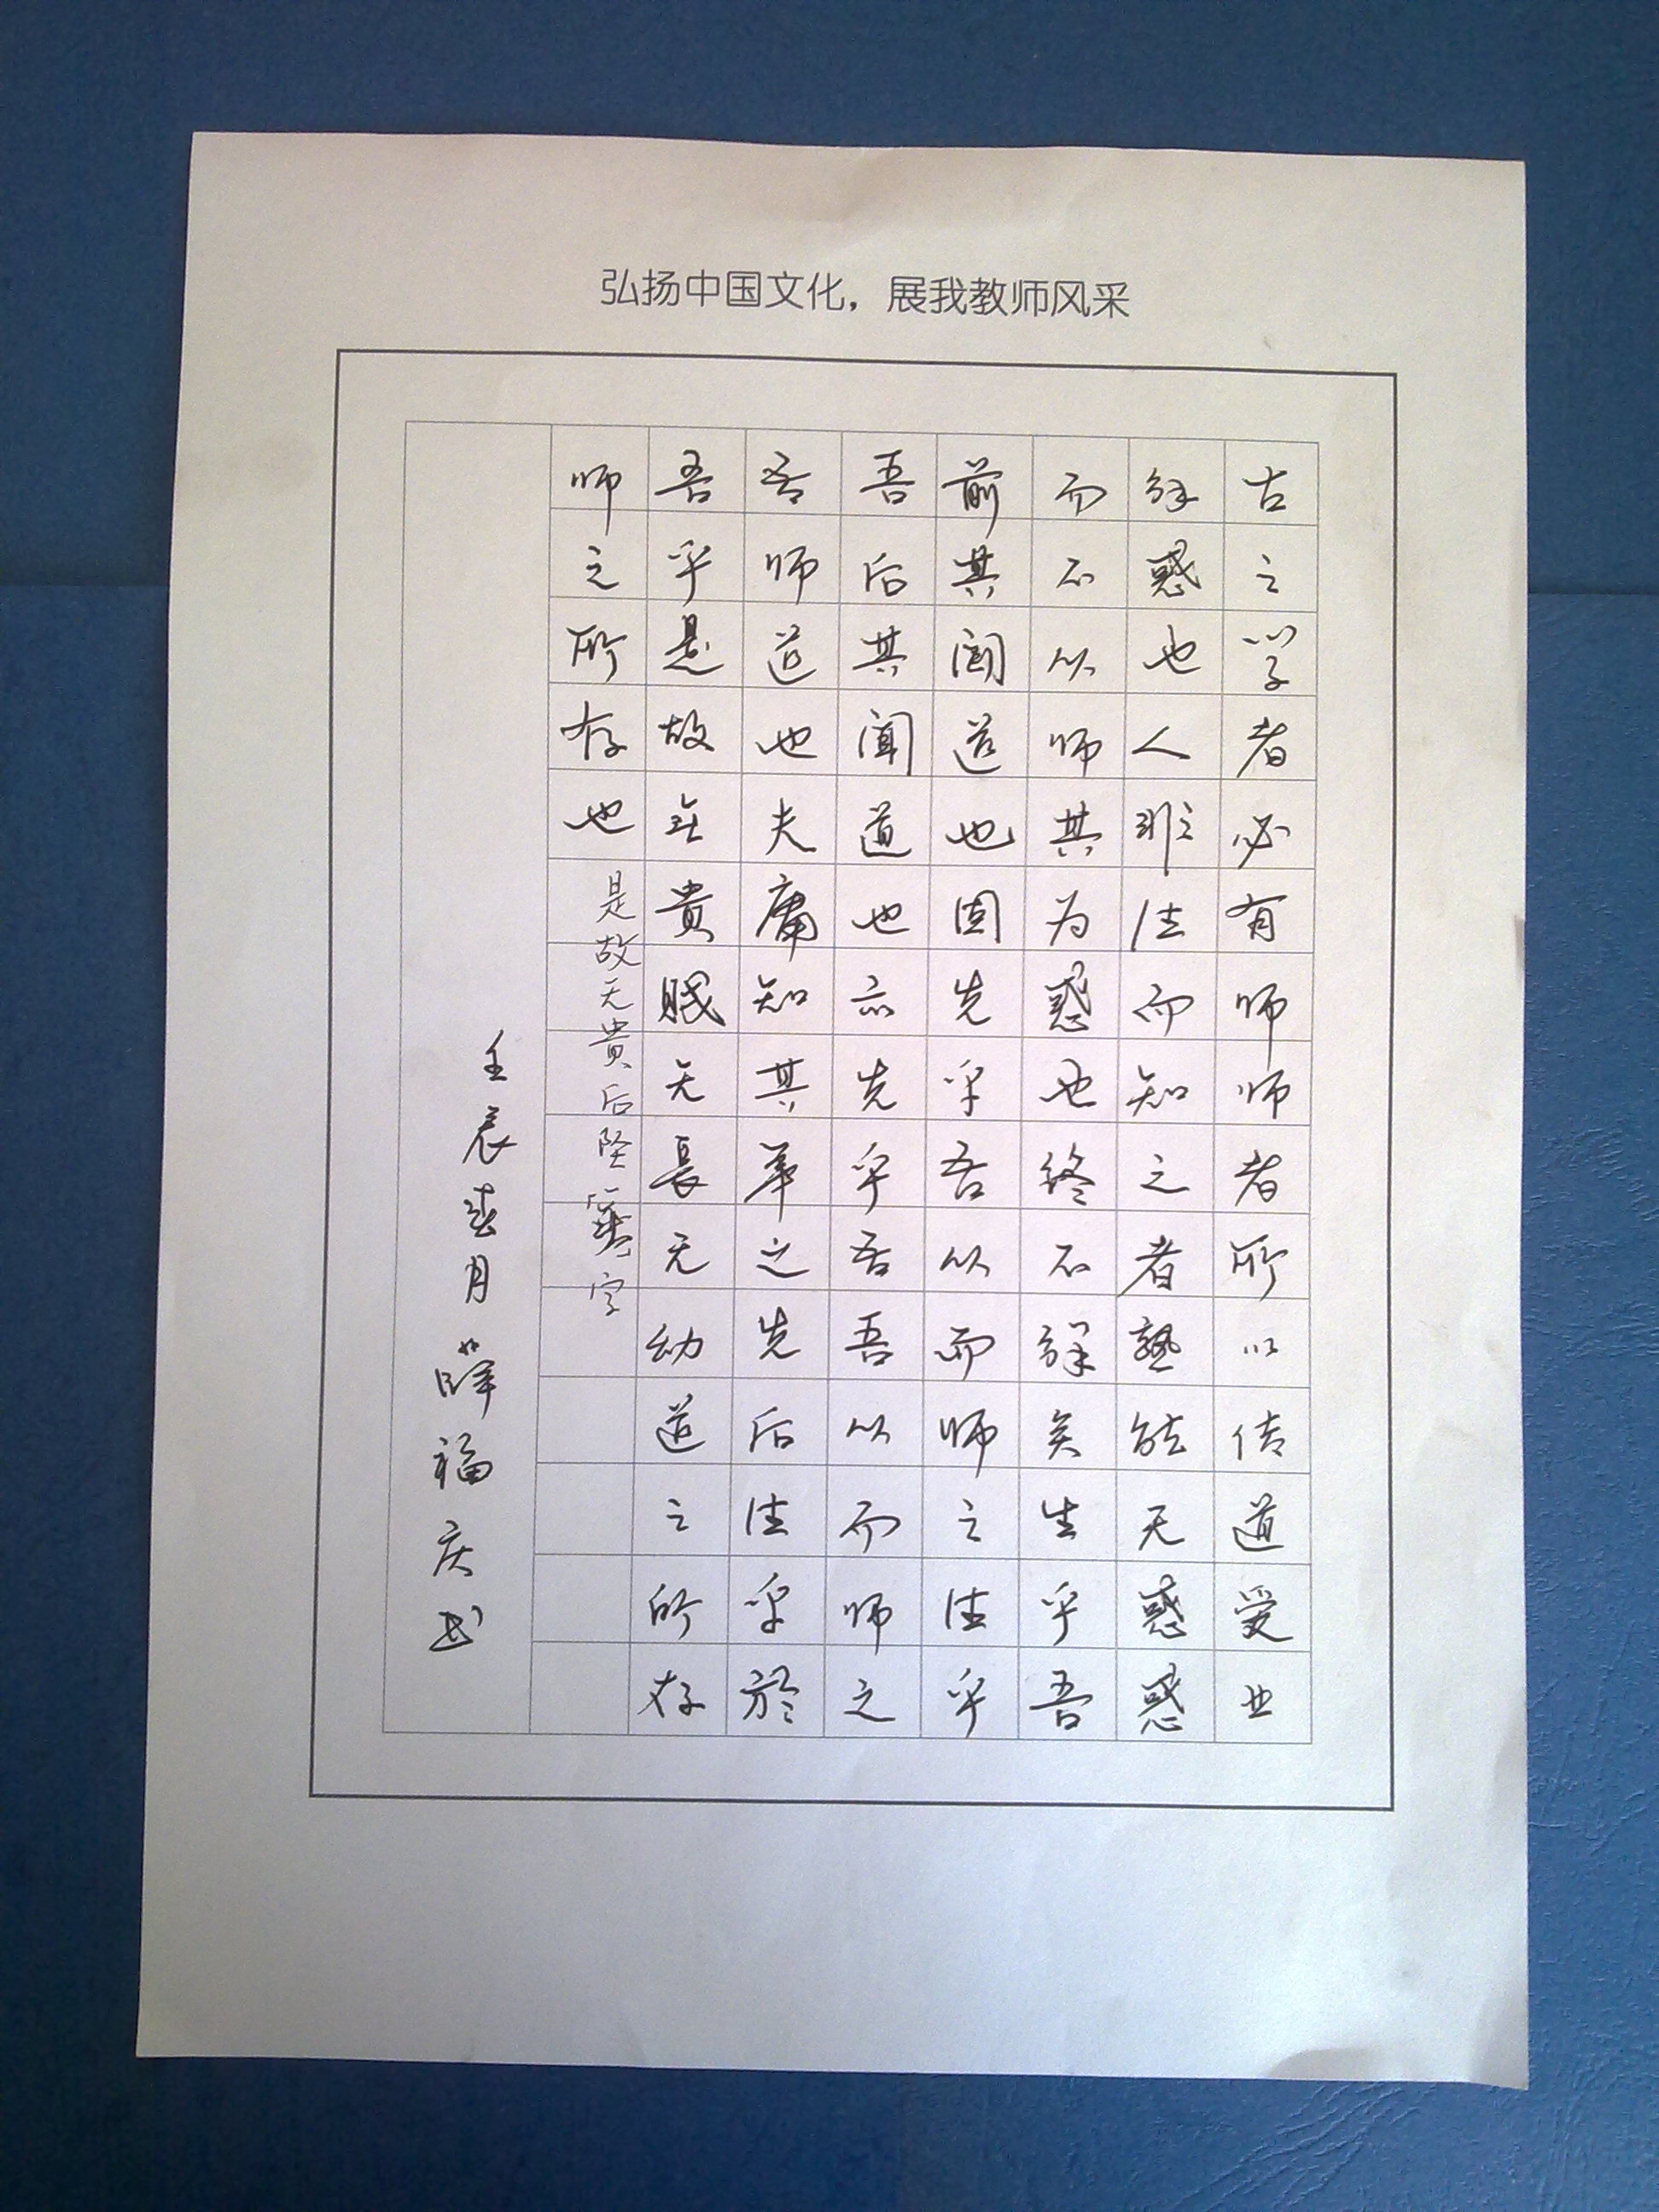 弘扬中国文化，展我教师风采
古之学者必有师师者所以传道受业
解惑也人非生而知之者孰能无惑惑
而不从师其为惑也终不解矣生乎吾
前其闻道也固先乎吾从而师之生乎
吾后其闻道也亦先乎吾吾从而师之
吾师道也夫庸知其年之先后生乎於
吾乎是故无貴賤无長无幼道之所存
师之所存也
是故无貴后坠字
壬辰春月薛福庆书